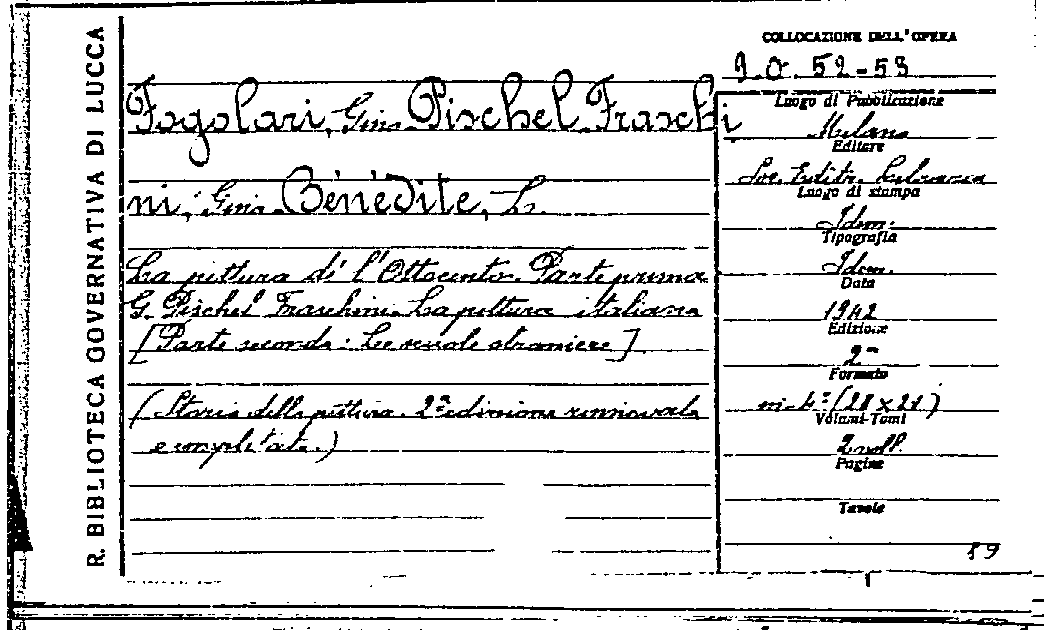 R. BIBLIOTECA GOVERNATIVA DI LUCCA
Fogolari, Gino. Pischel Fraschi
ni, Gina. Bénédite, L.
La pittura dell'Ottocento. Parte prima
G. Pischel Fraschini. La pittura italiana
[Parte seconda: Le scuole straniere].
(Storia della pittura. 2ª edizione rinnovata
e completata.)
COLLOCAZIONE DELL'OPERA
52-53
Luogo di Pubblicazione
Milano
Editore
Soc. Editr. Libraria
Luogo di stampa
Idem.
Tipografia
Idem.
Data
1942
Edizione
2ª
Formato
in-4º (28 x 21)
Volumi-Tomi
2 voll.
Pagine
Tavole